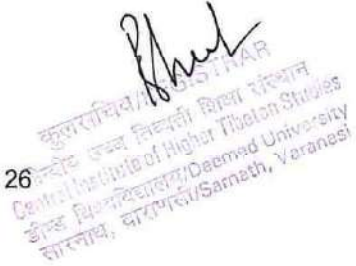 कुलसचिव/REGISTRAR
केन्द्रीय उच्च तिब्बती शिक्षा संस्थान
26
Central Institute of Higher Tibetan Studies
डीम्ड विश्वविद्यालय/Deemed University
सारनाथ, वाराणसी/Sarnath, Varanasi